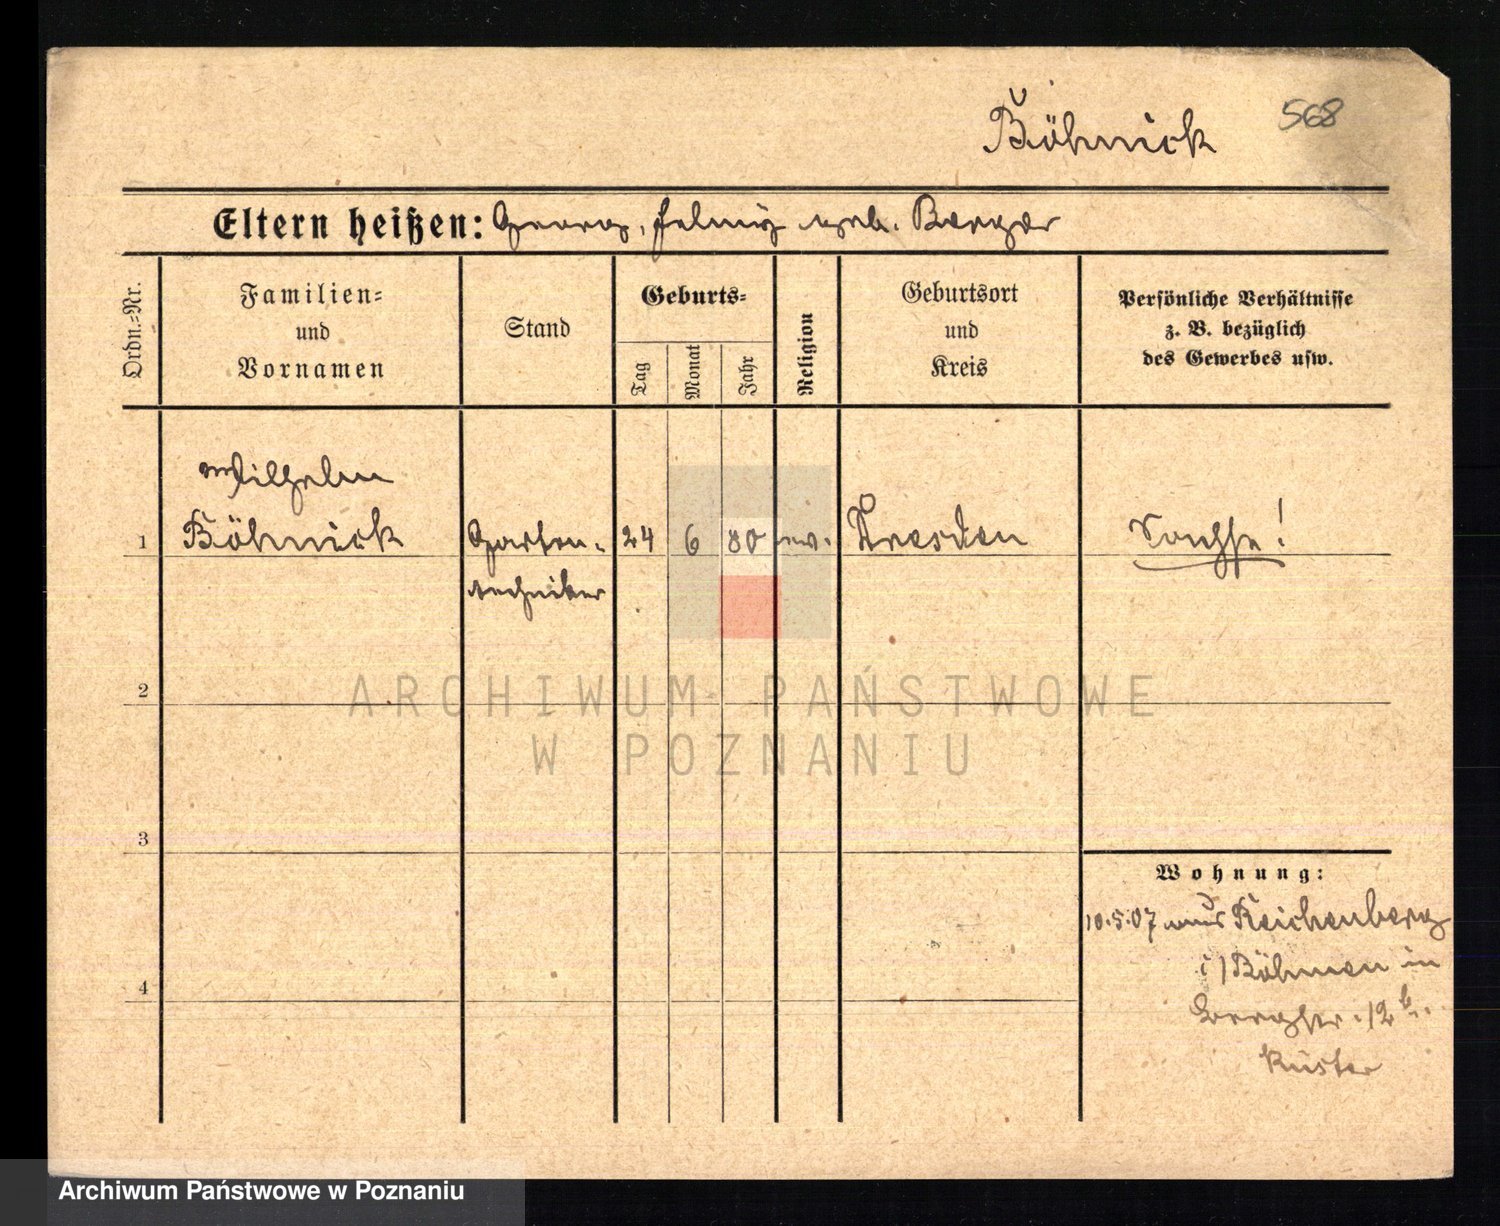 Böhnick 568
Eltern heißen: Georg, geb. Berger
Ordn.-Nr.
Familien-
und
Vornamen
Stand
Geburts-
Tag
Monat
Jahr
Religion
Geburtsort
und
Kreis
Persönliche Verhältnisse
z. B. bezüglich
des Gewerbes usw.
Wilhelm
1 Böhnick Garten- 24 6 80 ev. Dresden Sachse!
techniker
2
ARCHIWUM PAŃSTWOWE
W POZNANIU
3
Wohnung:
10.5.07 aus Reichenberg
i/Böhmen in
4
Bergstr. 12 b.
Küster
Archiwum Państwowe w Poznaniu